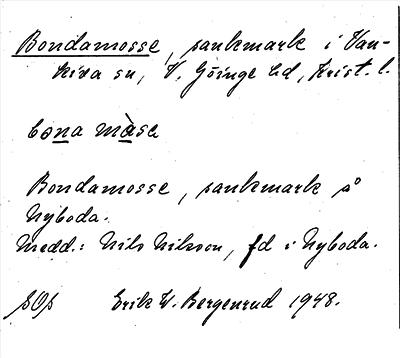 Bondamosse, sankmark i Van-
kiva sn, V. Göinge hd, Krist. l.
bona màse
Bondamosse, sankmark på
Nyboda.
Medd.: Nils Nilsson, fd i Nyboda.
Erik W. Bergenrud 1948.